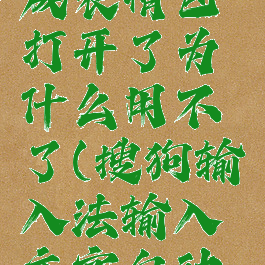 成表情包
打开了为
什么用不
了(搜狗输
入法输入
文字自动